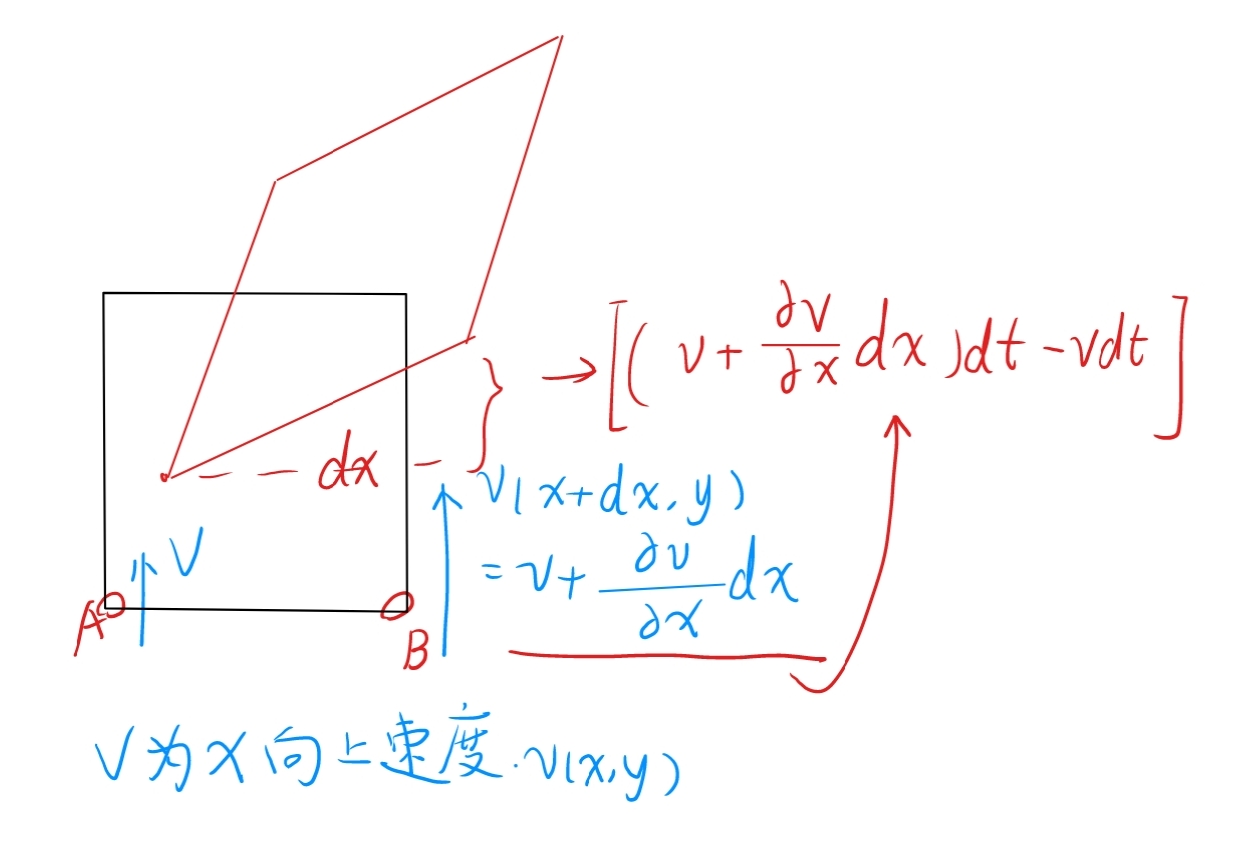 [(v+∂v/∂x dx)dt-vdt]
dx
v(x+dx,y)
=v+∂v/∂x dx
V
A
B
V为x向上速度.v(x,y)